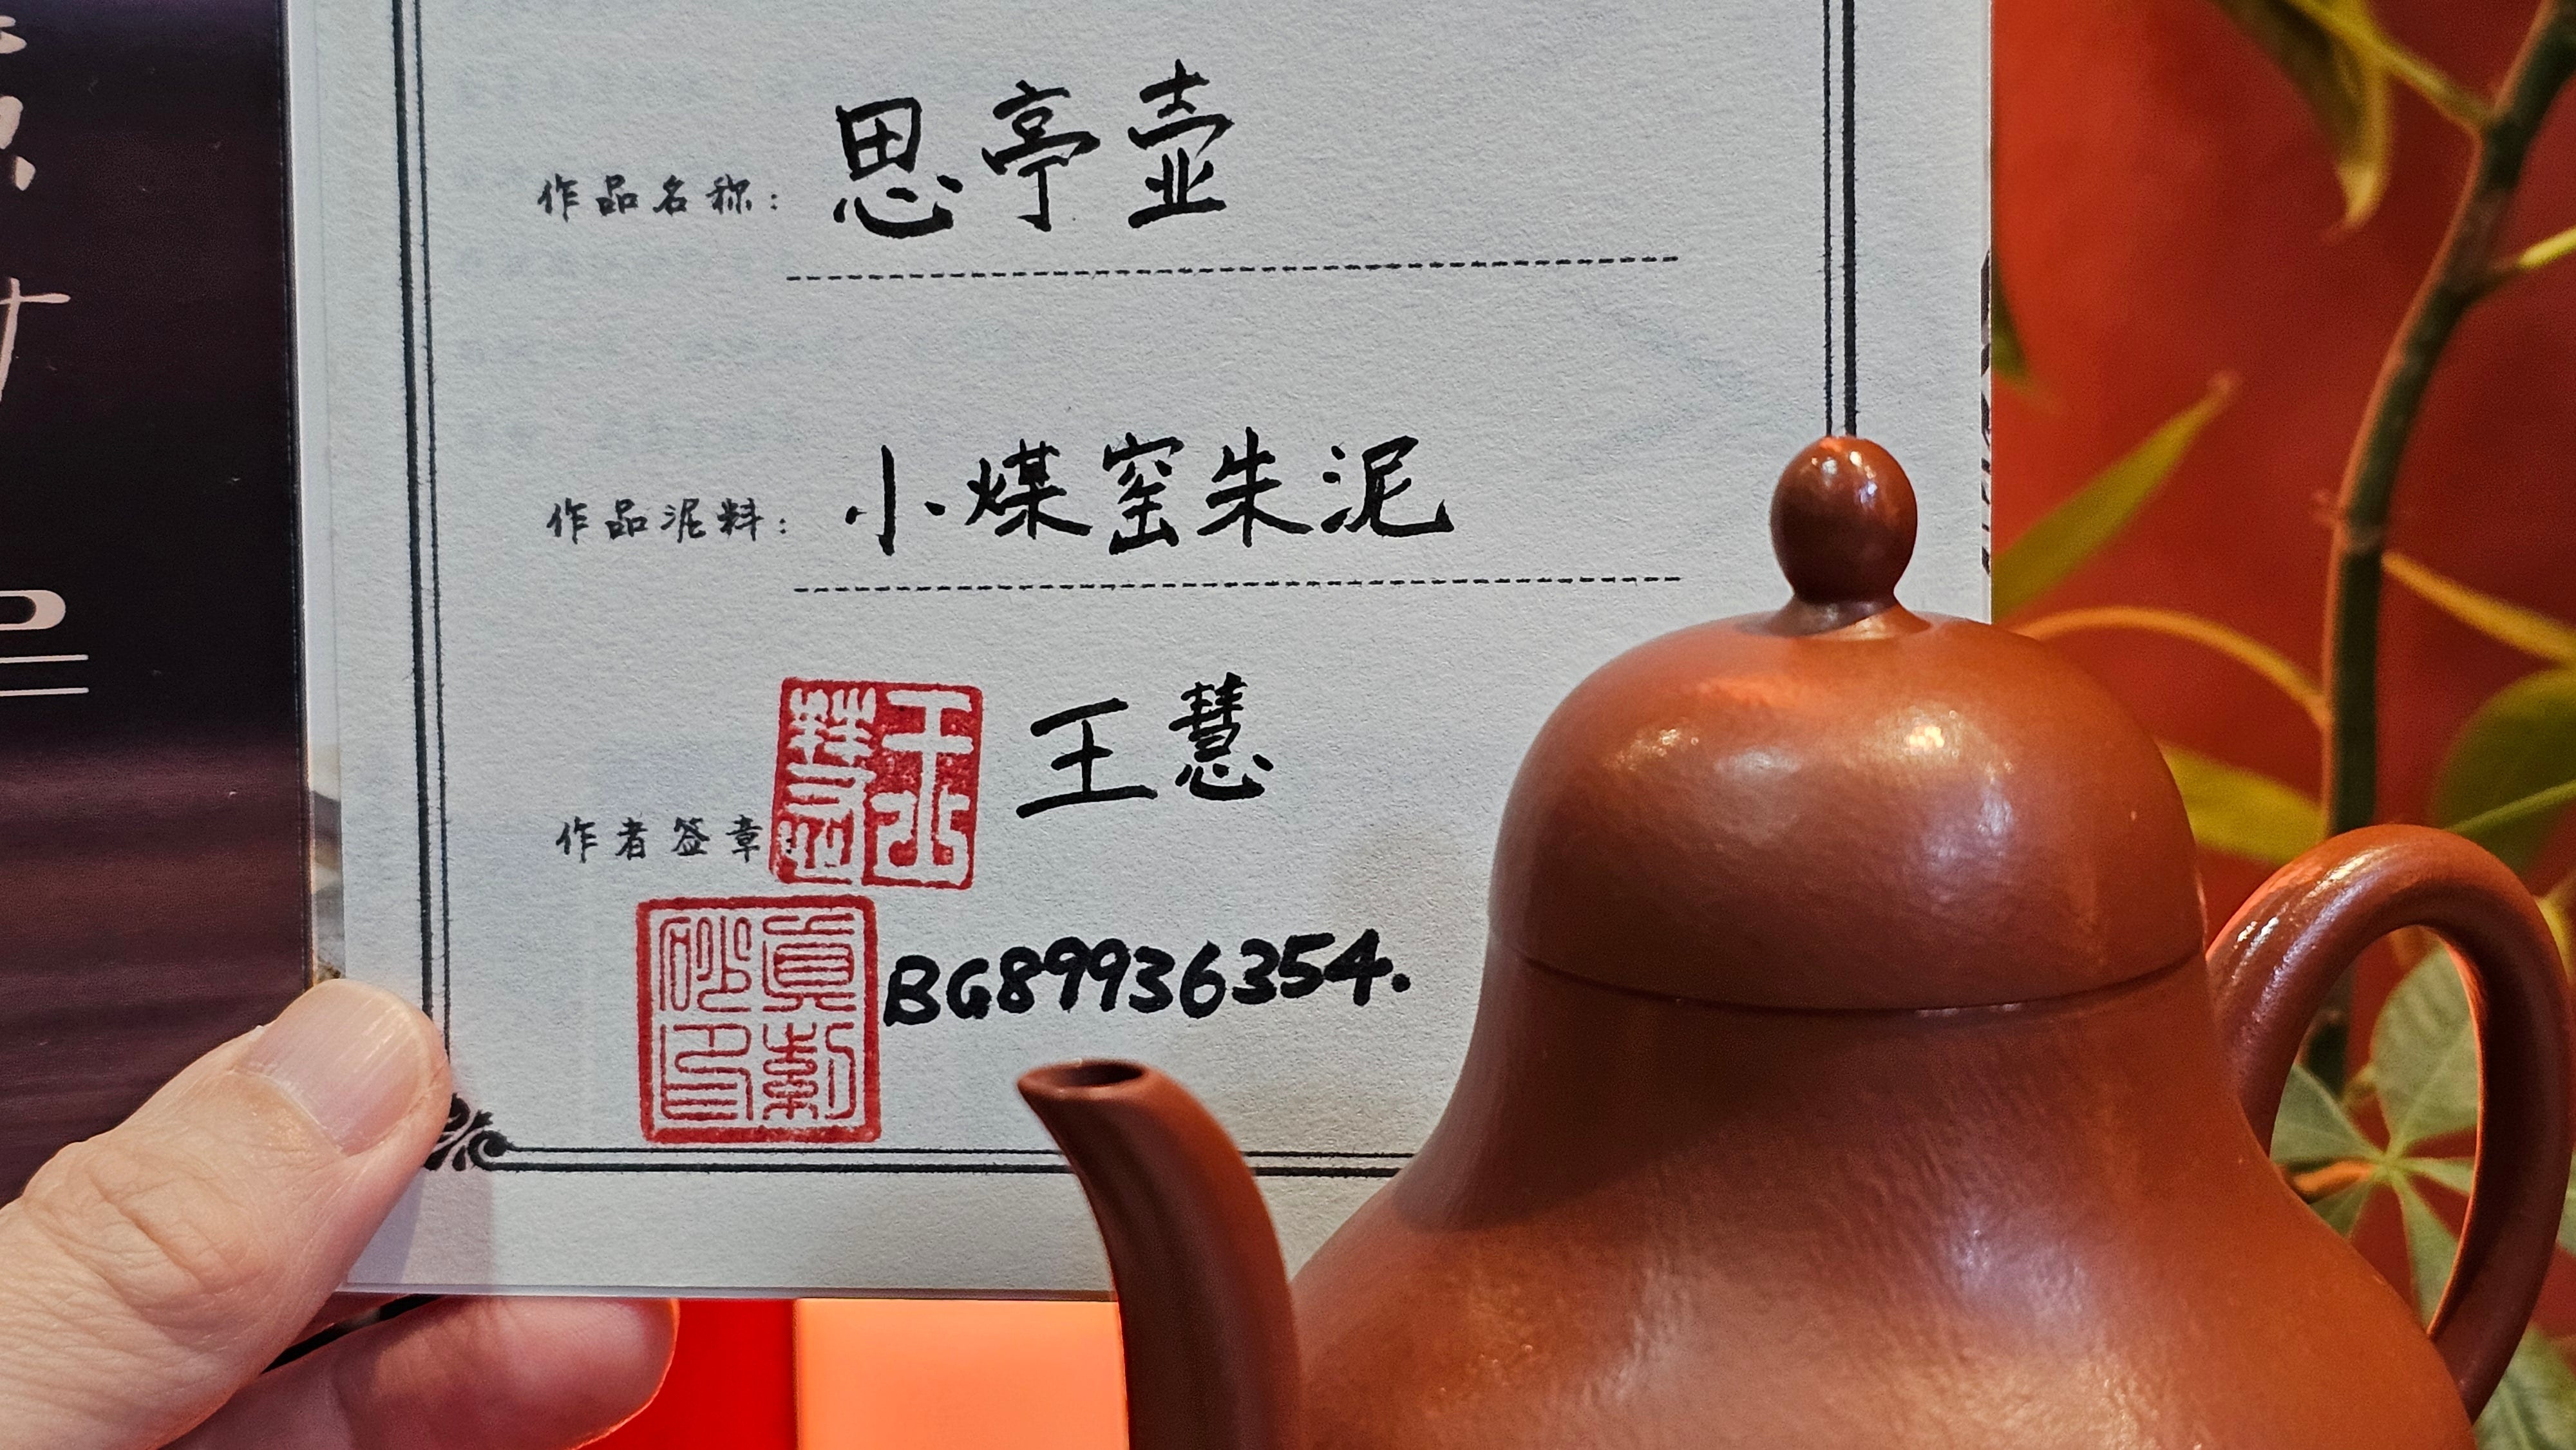 作品名称: 思亭壶
作品泥料: 小煤窑朱泥
作者签章: 王慧 王慧
BG89936354.